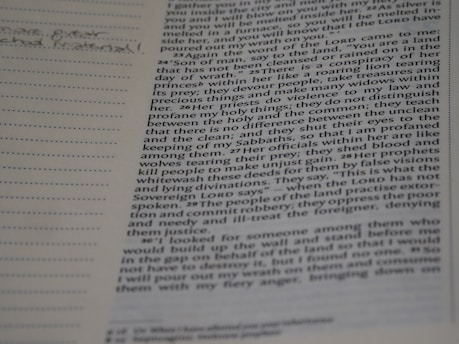 I gather you in my
you inside the city and melt
and I will blow on you with my fiery
and you will be melted inside her. 22As silver is
melted in a furnace, so you will be melted in-
side her, and you will know that I the LORD have
poured out my wrath on you.'"
23Again the word of the LORD came to me:
24"Son of man, say to the land, 'You are a land
that has not been cleansed or rained on in the
day of wrath.' 25There is a conspiracy of her
princes within her like a roaring lion tearing
its prey; they devour people, take treasures and
precious things and make many widows within
her. 26Her priests do violence to my law and
profane my holy things; they do not distinguish
between the holy and the common; they teach
that there is no difference between the unclean
and the clean; and they shut their eyes to the
keeping of my Sabbaths, so that I am profaned
among them. 27Her officials within her are like
wolves tearing their prey; they shed blood and
kill people to make unjust gain. 28Her prophets
whitewash these deeds for them by false visions
and lying divinations. They say, 'This is what the
Sovereign LORD says' – when the LORD has not
spoken. 29The people of the land practise extor-
tion and commit robbery; they oppress the poor
and needy and ill-treat the foreigner, denying
them justice.
30"I looked for someone among them who
would build up the wall and stand before me
in the gap on behalf of the land so that I would
not have to destroy it, but I found no one. 31So
I will pour out my wrath on them and consume
them with my fiery anger, bringing down on